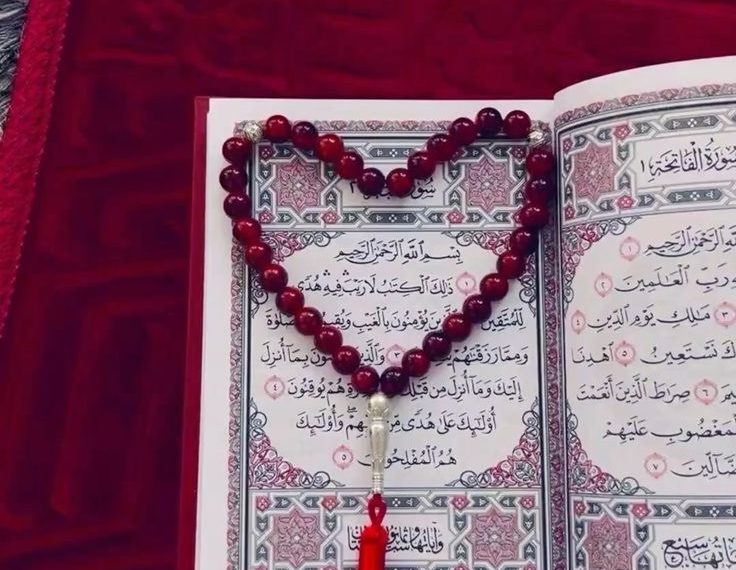 سُورَةُ الْفَاتِحَةِ ١
اللَّهِ الرَّحْمَٰنِ الرَّحِيمِ ١
رَبِّ الْعَالَمِينَ ٢
٣ مَٰلِكِ يَوْمِ الدِّينِ ٤
كَ نَسْتَعِينُ ٥ اهْدِنَا
٦ صِرَٰطَ الَّذِينَ أَنْعَمْتَ
لْمَغْضُوبِ عَلَيْهِمْ
ضَّآلِّينَ ٧
سبع
سُورَةُ ٢
بِسْمِ اللَّهِ الرَّحْمَٰنِ الرَّحِيمِ
١ ذَٰلِكَ الْكِتَٰبُ لَا رَيْبَ فِيهِ هُدًى
لِّلْمُتَّقِينَ يُؤْمِنُونَ بِالْغَيْبِ وَيُقِيمُونَ الصَّلَوٰةَ
وَمِمَّا رَزَقْنَٰهُمْ ٣ وَالَّذِينَ بِمَآ أُنزِلَ
إِلَيْكَ وَمَآ أُنزِلَ مِن قَبْلِكَ هُمْ يُوقِنُونَ ٤
أُوْلَٰٓئِكَ عَلَىٰ هُدًى مِّن وَأُوْلَٰٓئِكَ
هُمُ الْمُفْلِحُونَ ٥